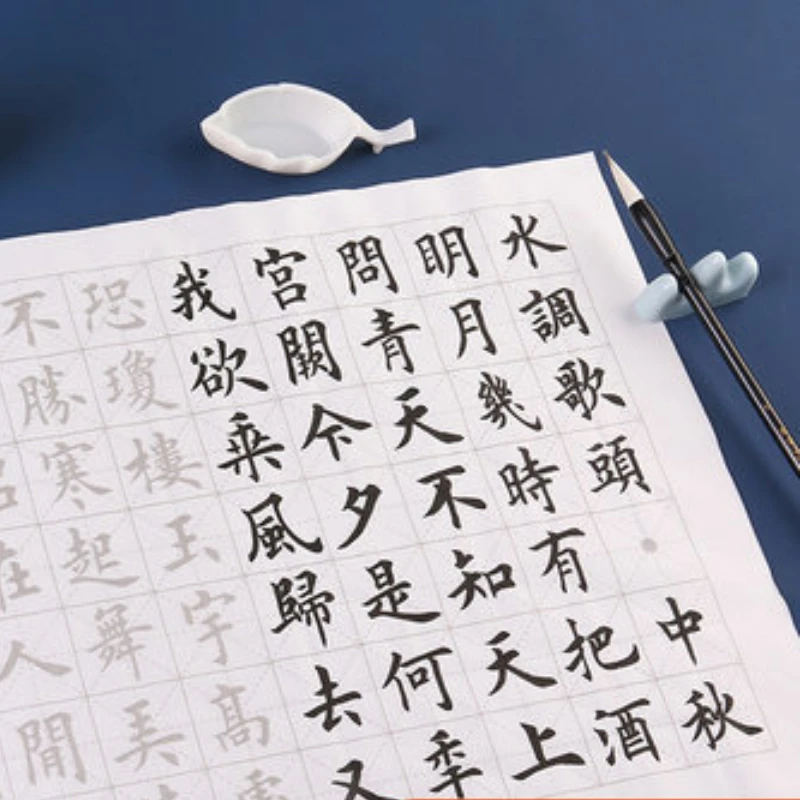 水調歌頭·中秋
明月幾時有把酒
問青天不知天上
宮闕今夕是何秊
我欲乘風歸去又
恐瓊樓玉宇高處
不勝寒起舞弄
在人間